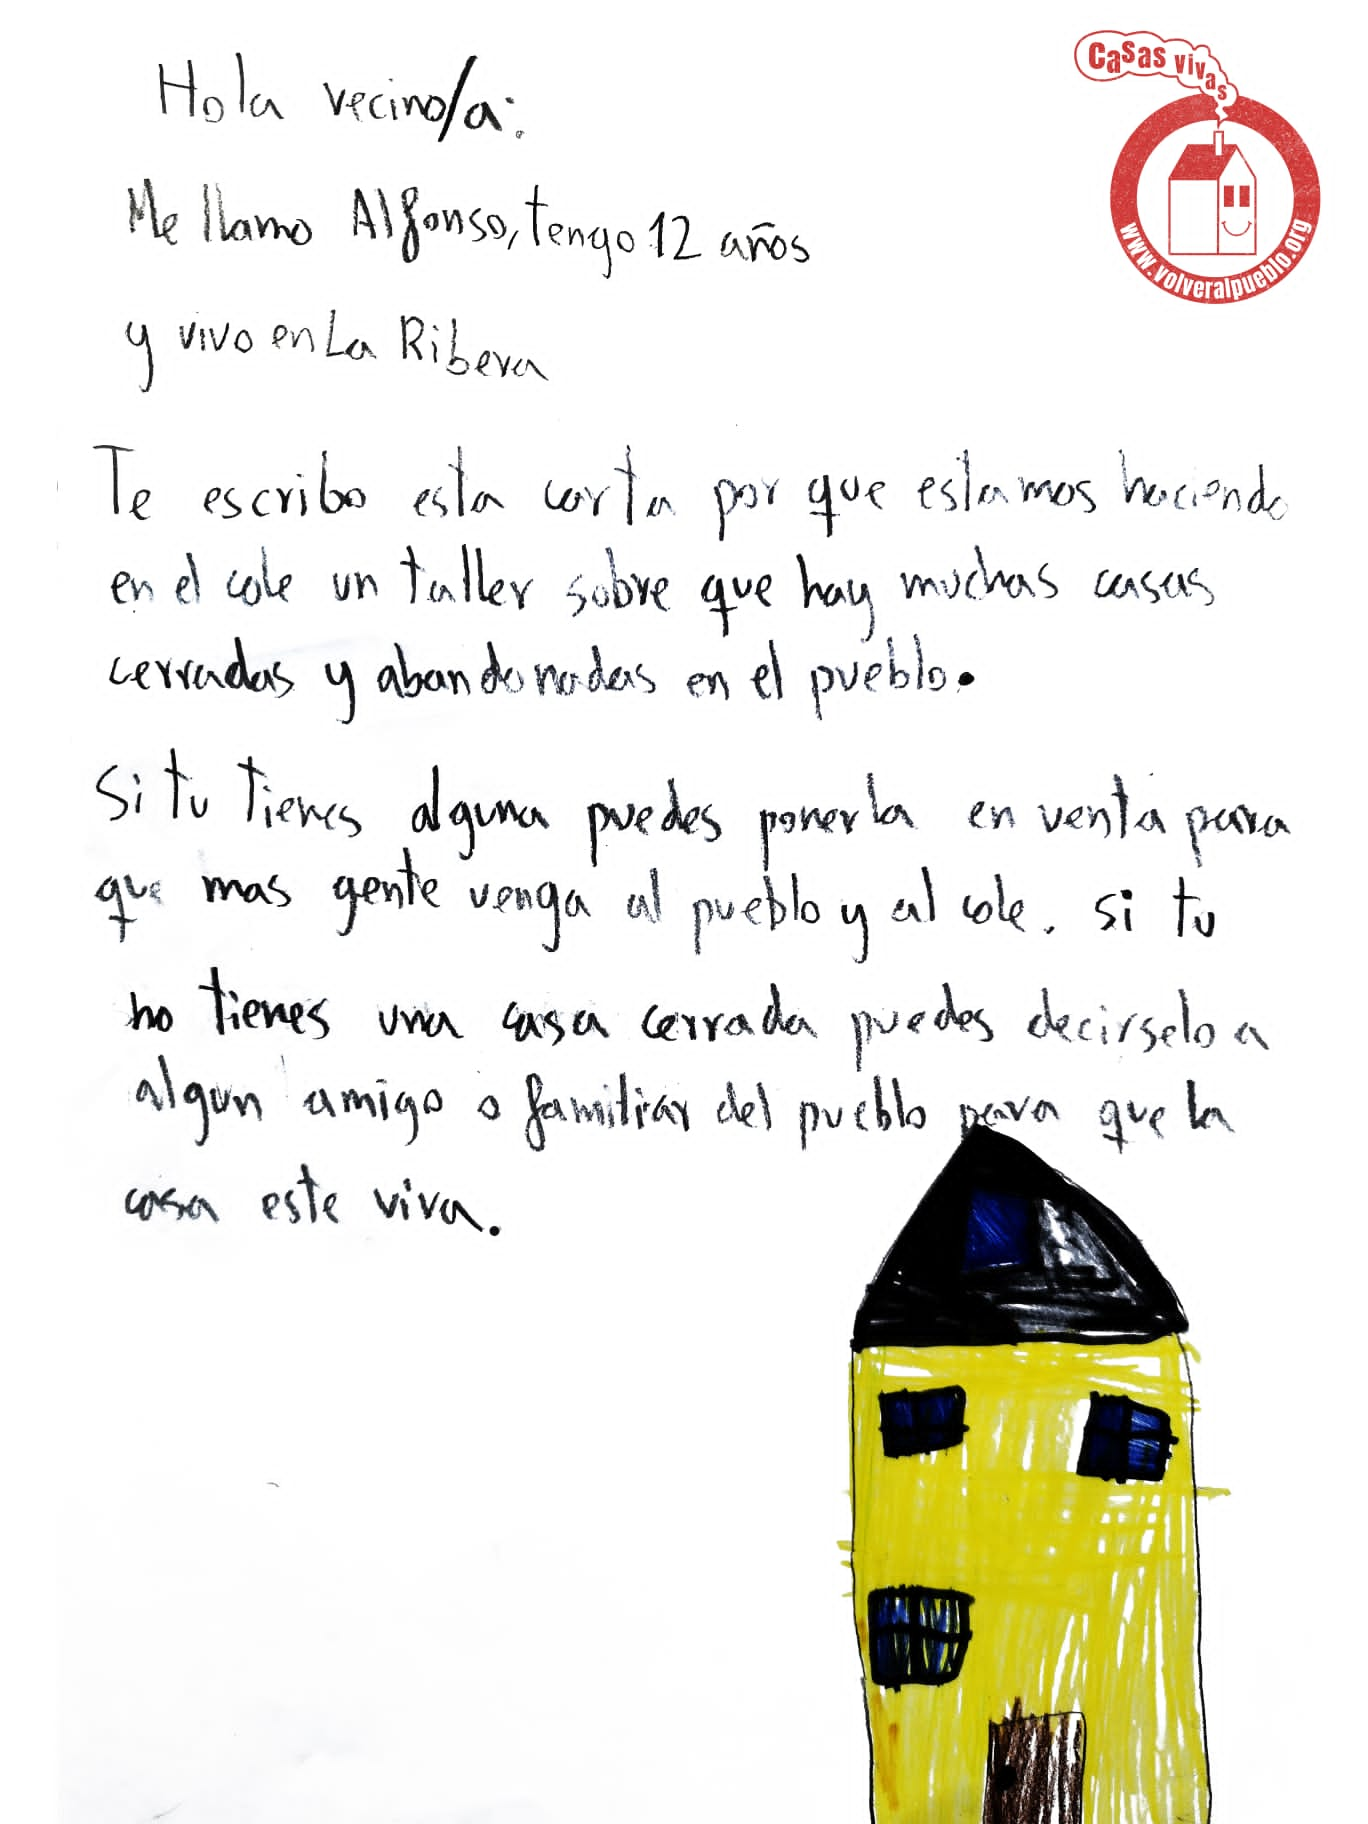 Casas vivas
www.volveralpueblo.org
Hola vecino/a:
Me llamo Alfonso, tengo 12 años
y vivo en La Ribera
Te escribo esta carta por que estamos haciendo
en el cole un taller sobre que hay muchas casas
cerradas y abandonadas en el pueblo.
Si tu tienes alguna puedes ponerla en venta para
que mas gente venga al pueblo y al cole. si tu
no tienes una casa cerrada puedes decirselo a
algun amigo o familiar del pueblo para que la
casa este viva.